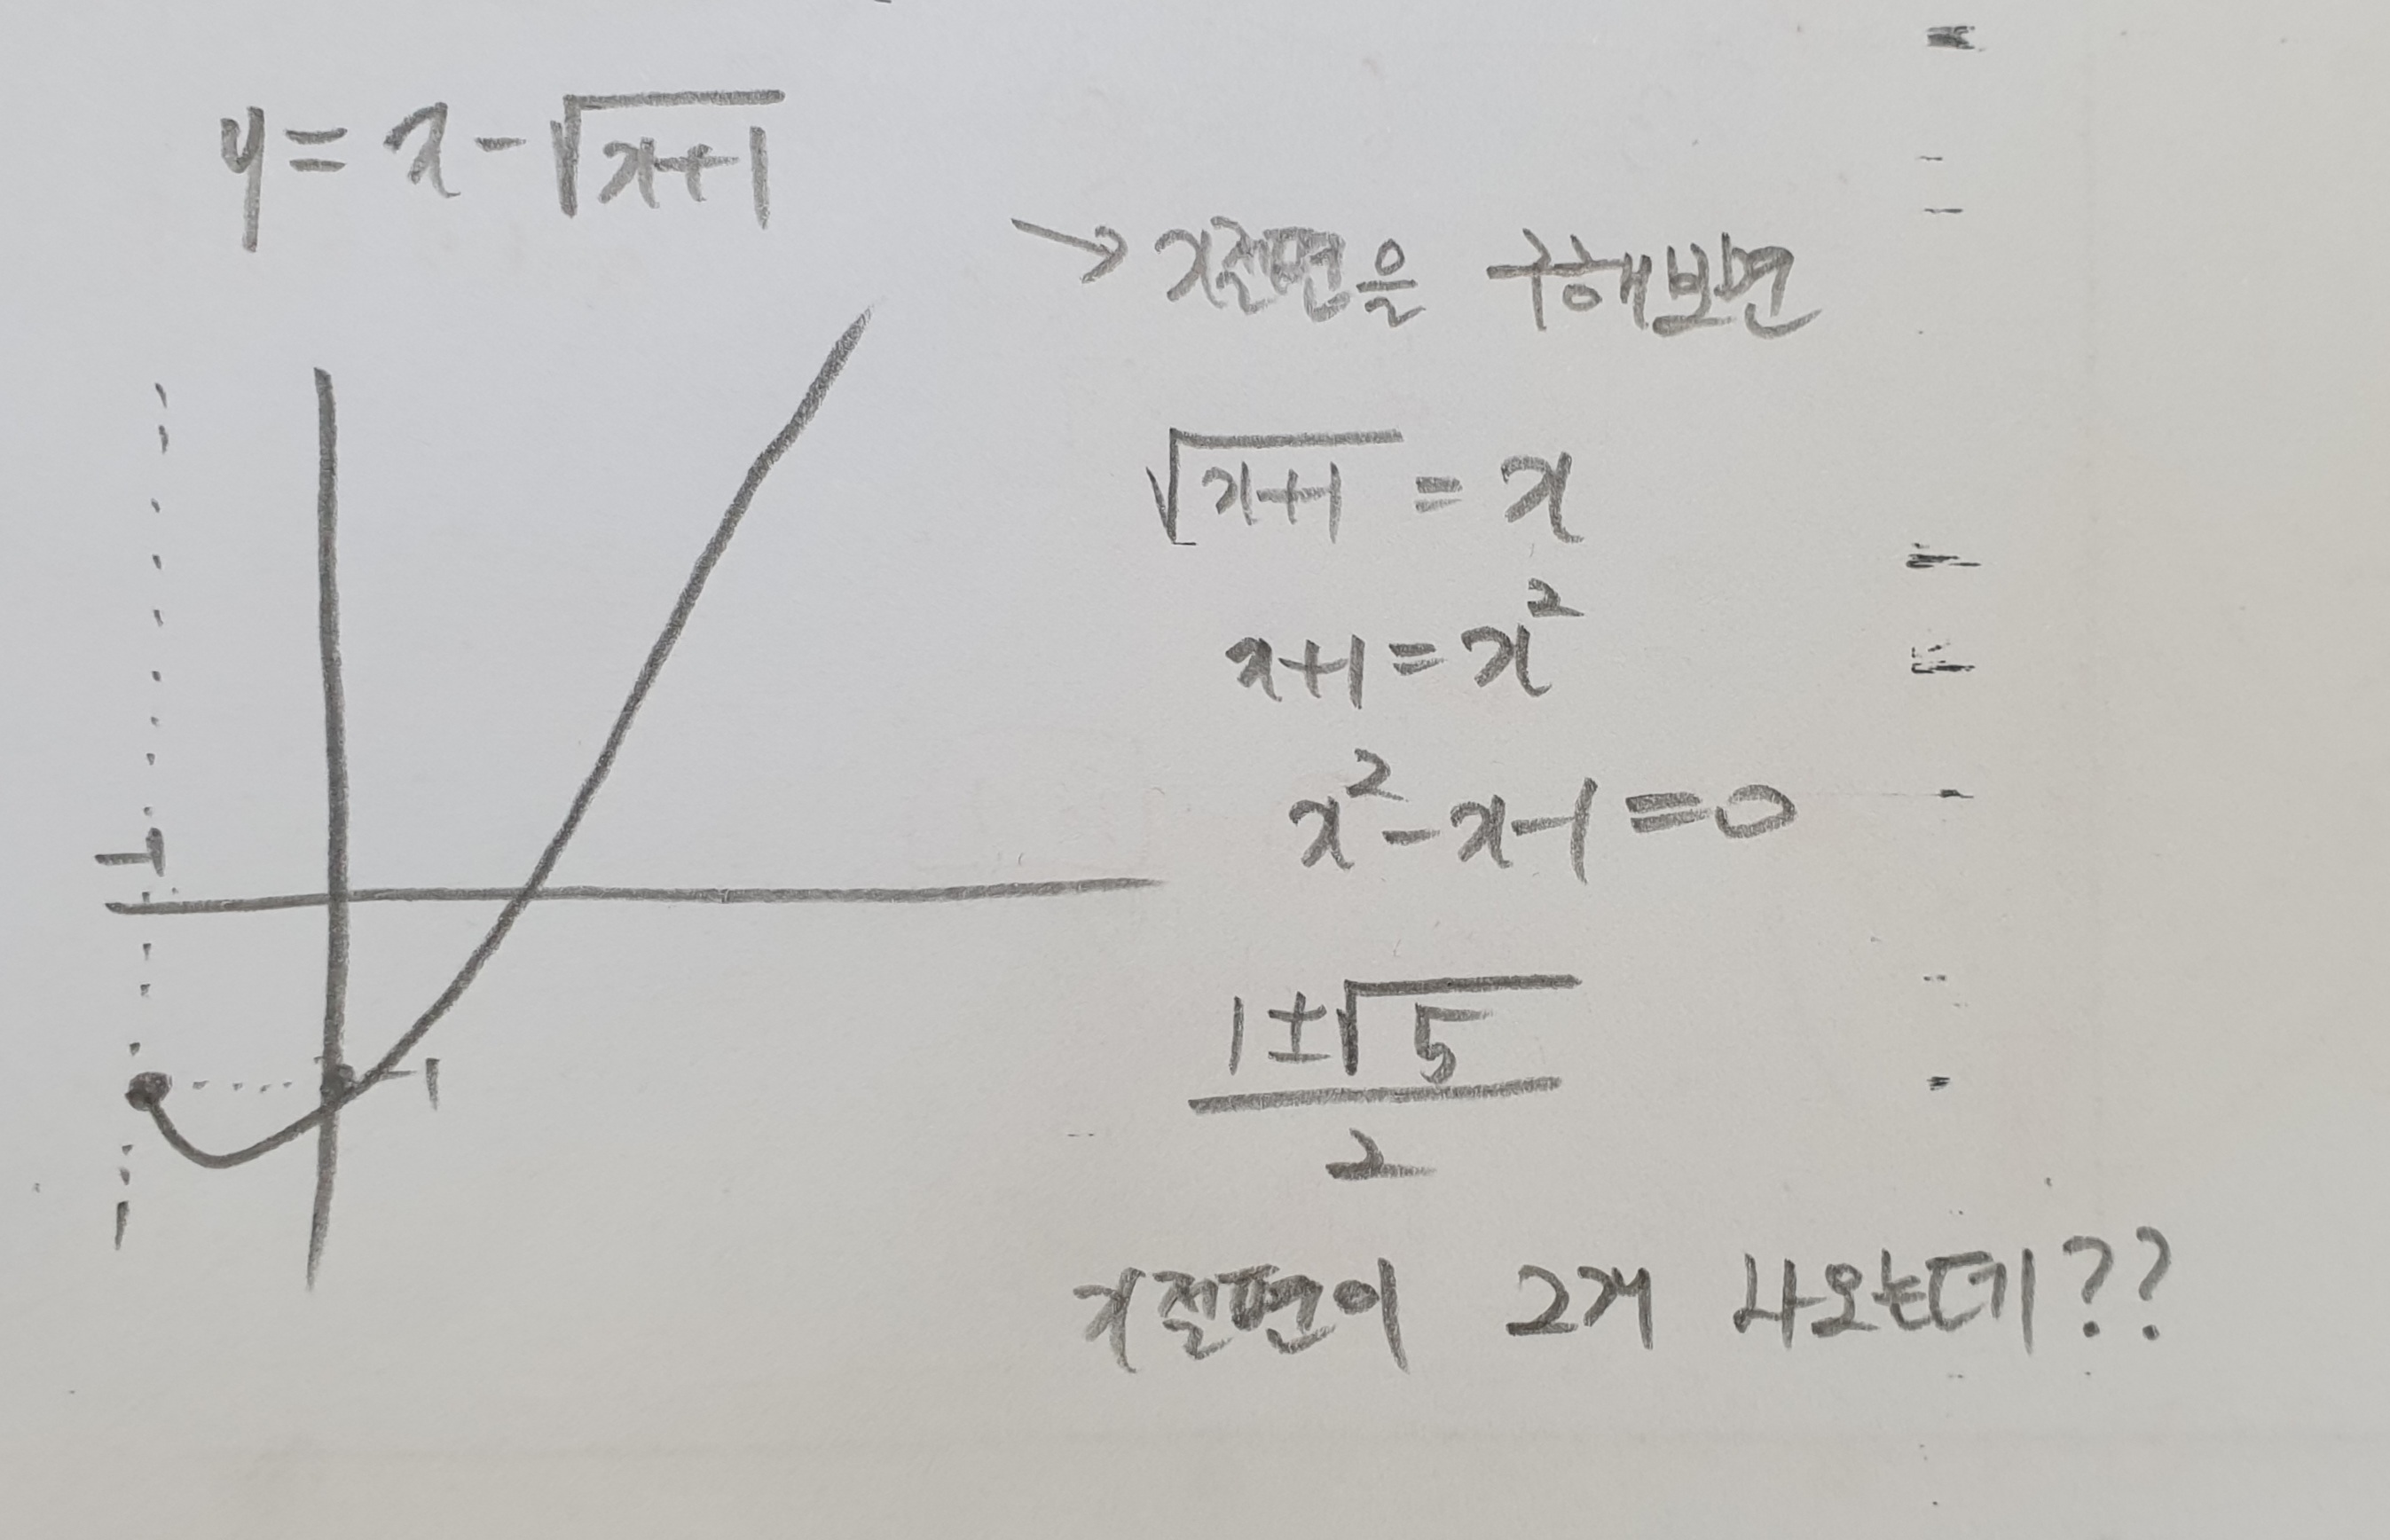 y = x - √(x+1)
→ x절편을 구해보면
√(x+1) = x
x+1 = x²
x² - x - 1 = 0
(1±√5)/2
-1
-1
x절편이 2개 나오는데??